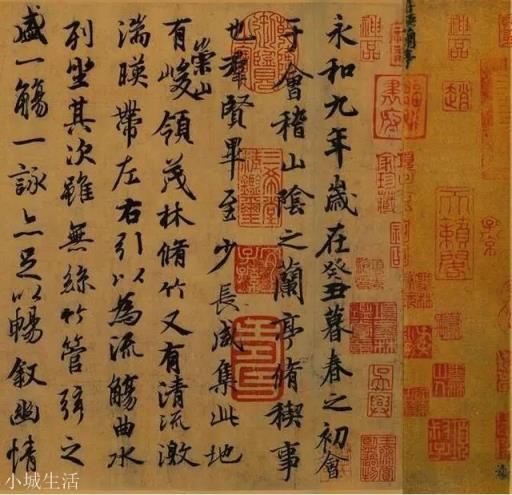 永和九年歲在癸丑暮春之初會
于會稽山陰之蘭亭脩稧事
也羣賢畢至少長咸集此地
有崇山峻領茂林脩竹又有清流激
湍暎帶左右引以為流觴曲水
列坐其次雖無絲竹管弦之
盛一觴一詠亦足以暢敘幽情
天籟閣
神品
趙
子京
小城生活